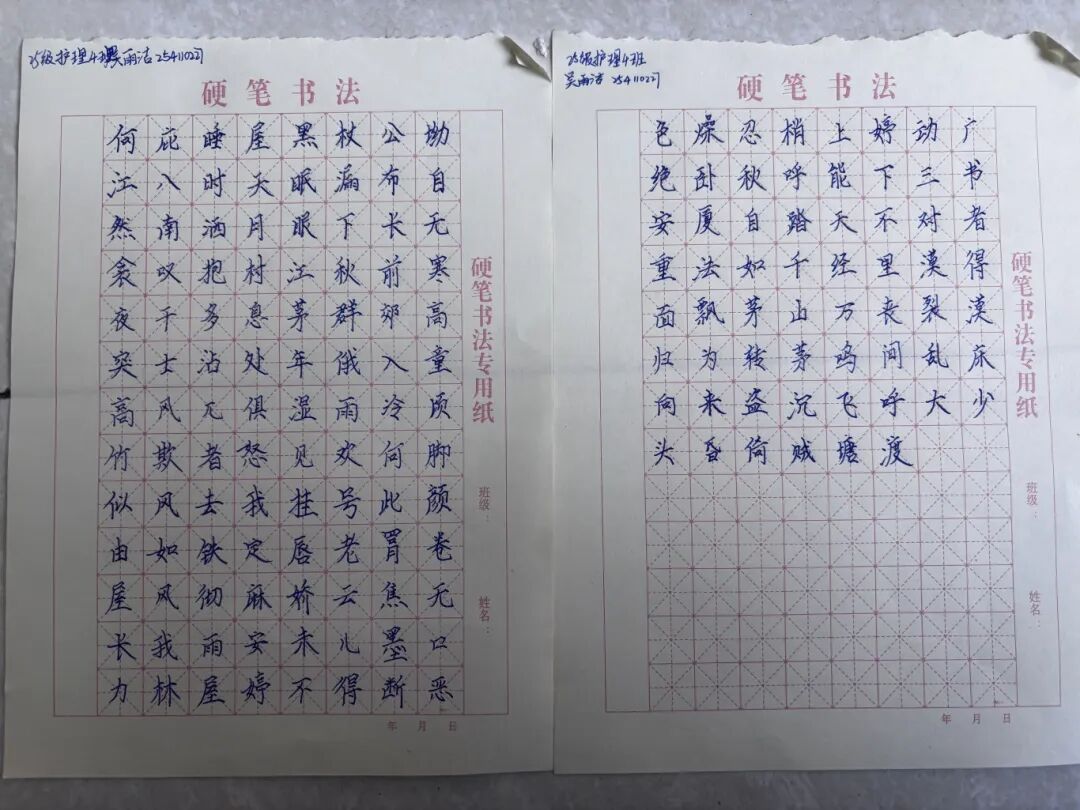 25级护理4班吴雨洁 25411027
硬笔书法
何庇睡屋黑杖公坳
江八时天眠漏布自
然南洒月眼下长无
衾叹抱村江秋前寒
夜千多息茅群郊高
突士沾处年俄入重
高风兀俱湿雨冷顷
竹欺者怒见欢何脚
似风去我挂号此颜
由如铁定唇老罥卷
屋风彻麻娇云焦无
长我雨安未儿墨口
力林屋婷不得断恶
硬笔书法专用纸
班级：
姓名：
年 月 日
25级护理4班
吴雨洁 25411027
硬笔书法
色燥忍梢上婷动广
绝卧秋呼能下三书
安厦自踏天不对者
重法如千经里漠得
面飘茅山万丧裂漠
归为转茅鸣间乱床
向来盗沉飞呼大少
头昏倚贼塘渡
硬笔书法专用纸
班级：
姓名：
年 月 日